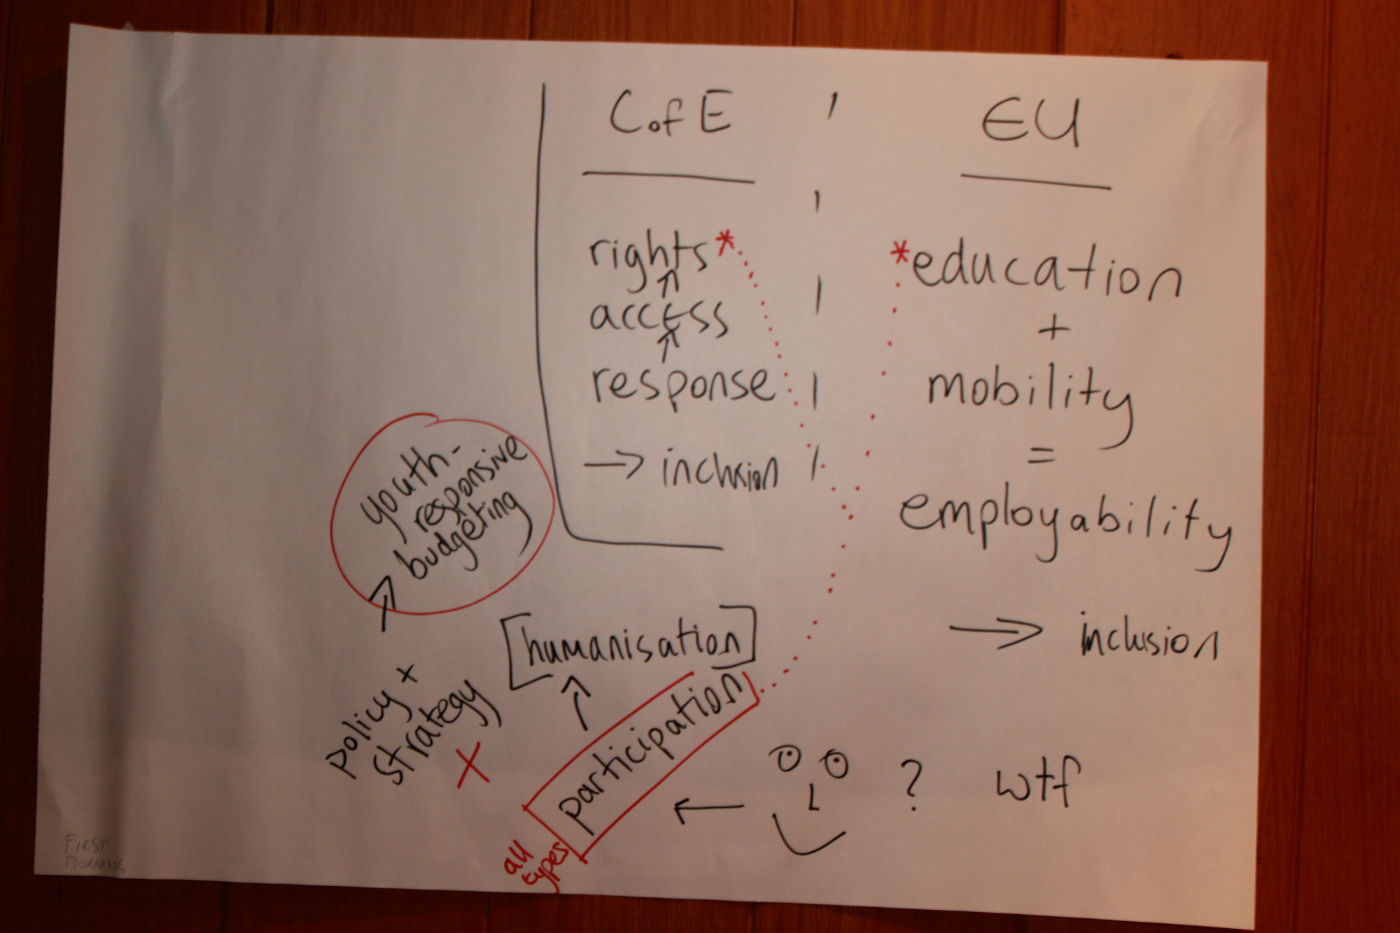 CofE
EU
rights*
access
response
→ inclusion
*education
+
mobility
=
employability
→ inclusion
youth-
responsive
budgeting
policy +
strategy
[humanisation]
participation
all
types
? wtf
FIRST
MORNING